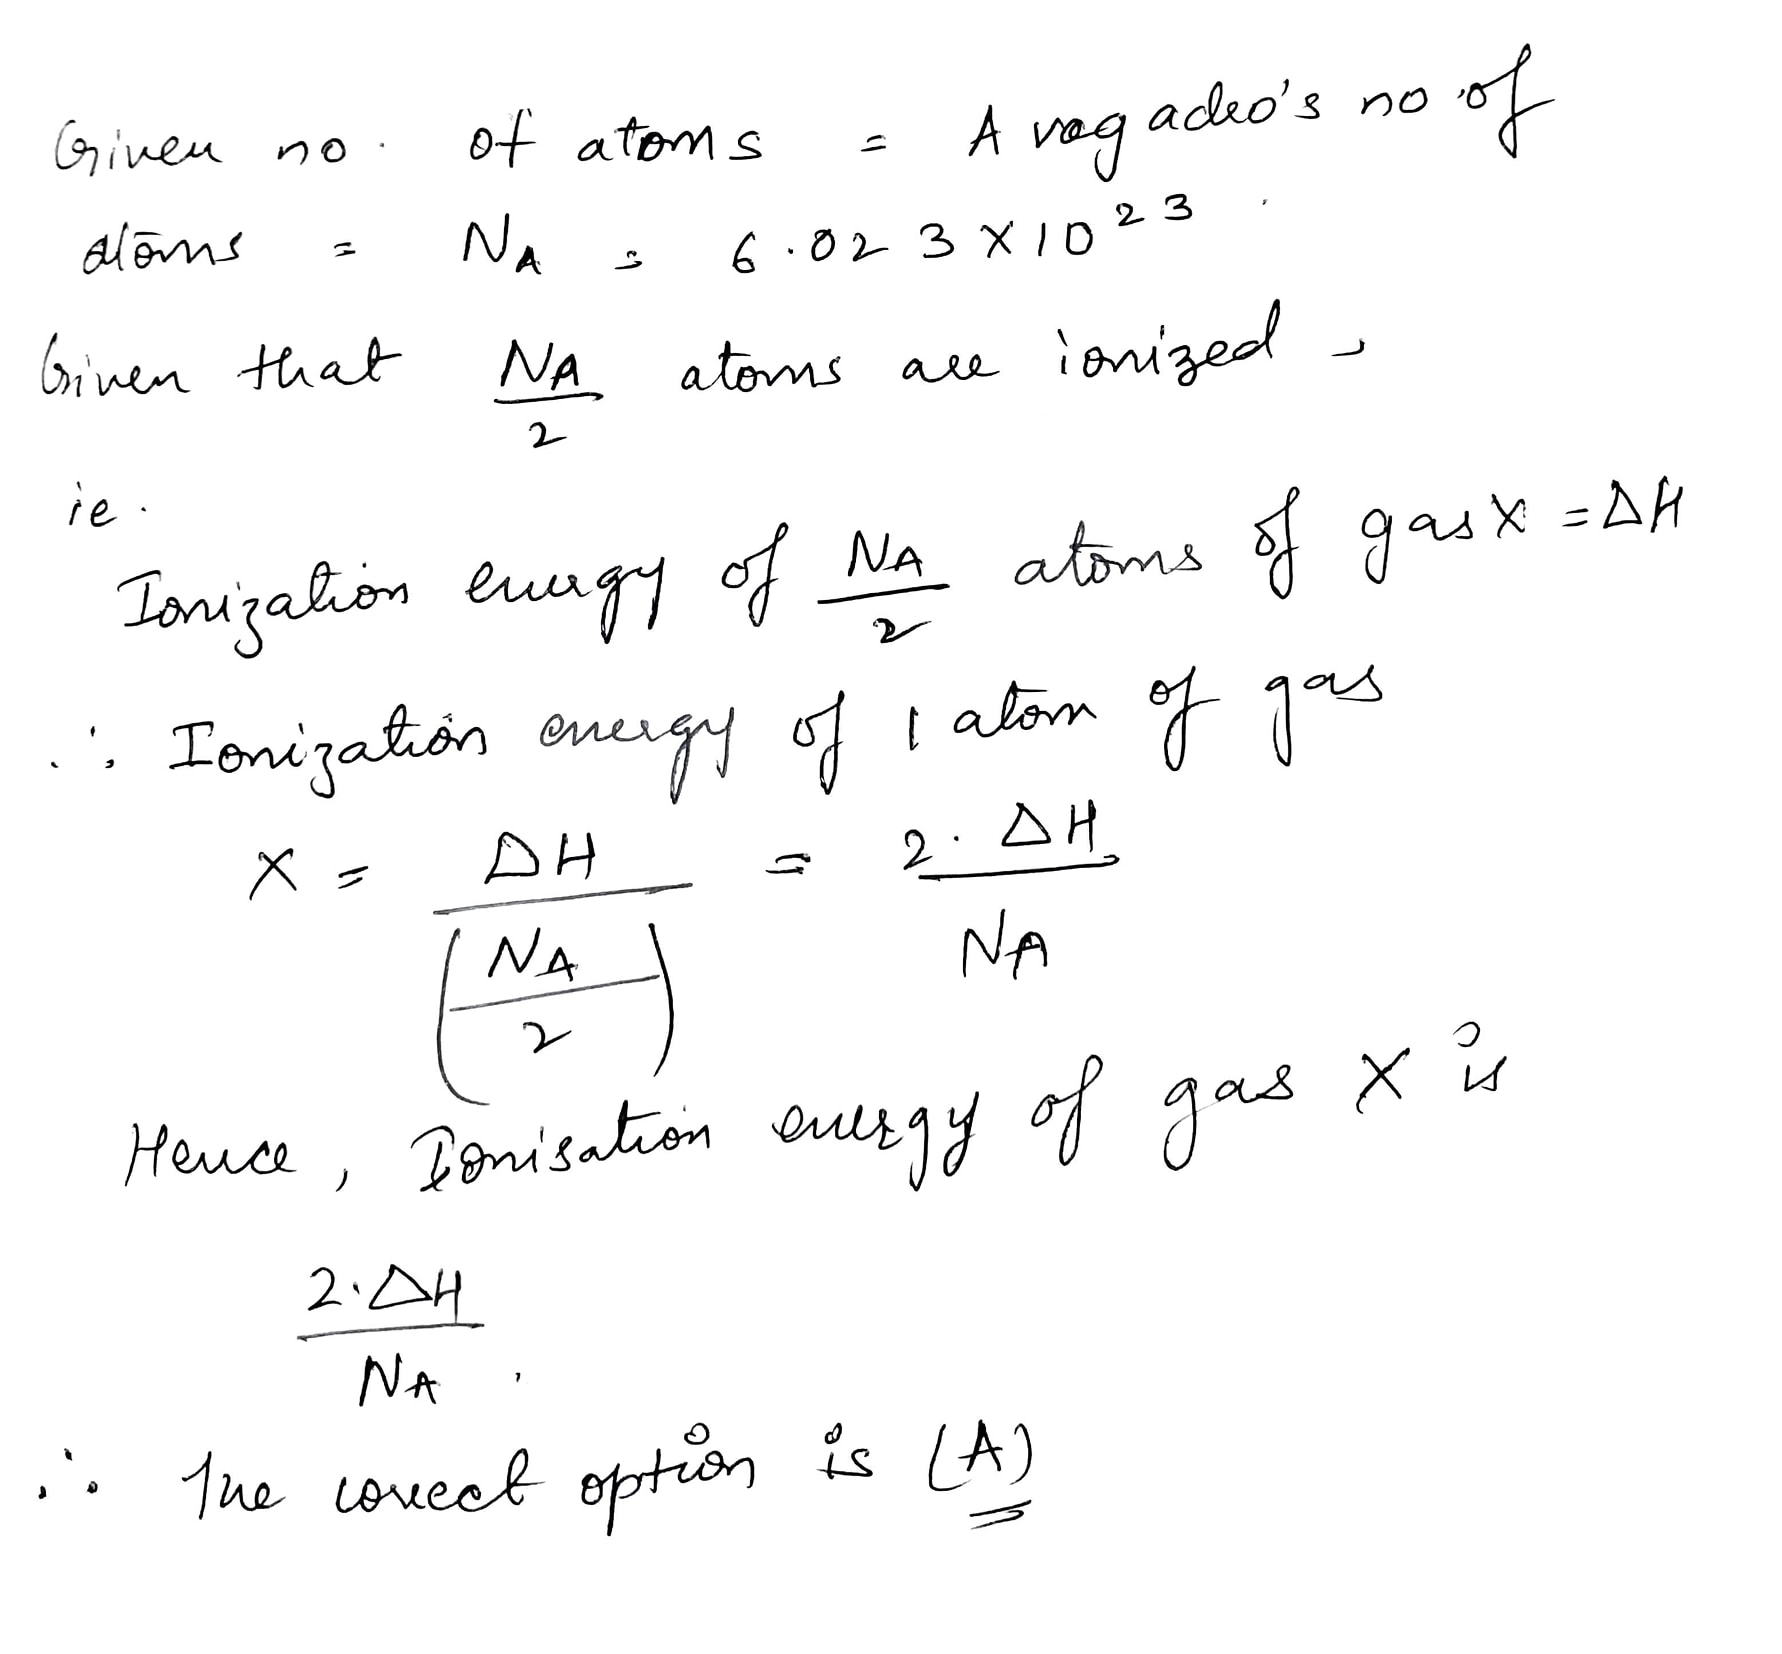 Given no. of atoms = Avagadro's no. of
atoms = NA = 6.023 X 10^23.
Given that NA/2 atoms are ionized,
ie.
Ionization energy of NA/2 atoms of gas X = ΔH
∴ Ionization energy of 1 atom of gas
X = ΔH/(NA/2) = 2.ΔH/NA
Hence, Ionisation energy of gas X is
2.ΔH/NA.
∴ The correct option is (A)